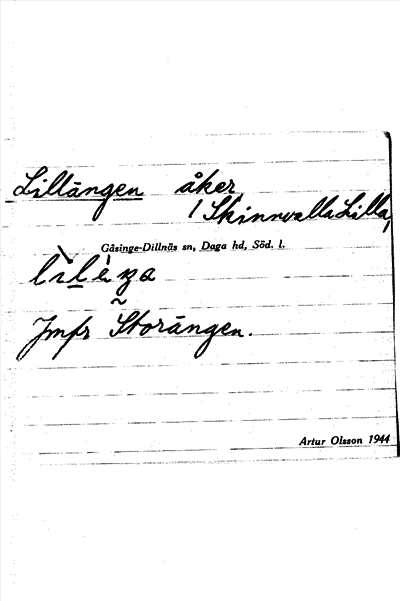 Lillängen åker
/ Skinnvalla Lilla /
Gåsinge-Dillnäs sn, Daga hd, Söd. l.
Jmfr Storängen.
Artur Olsson 1944